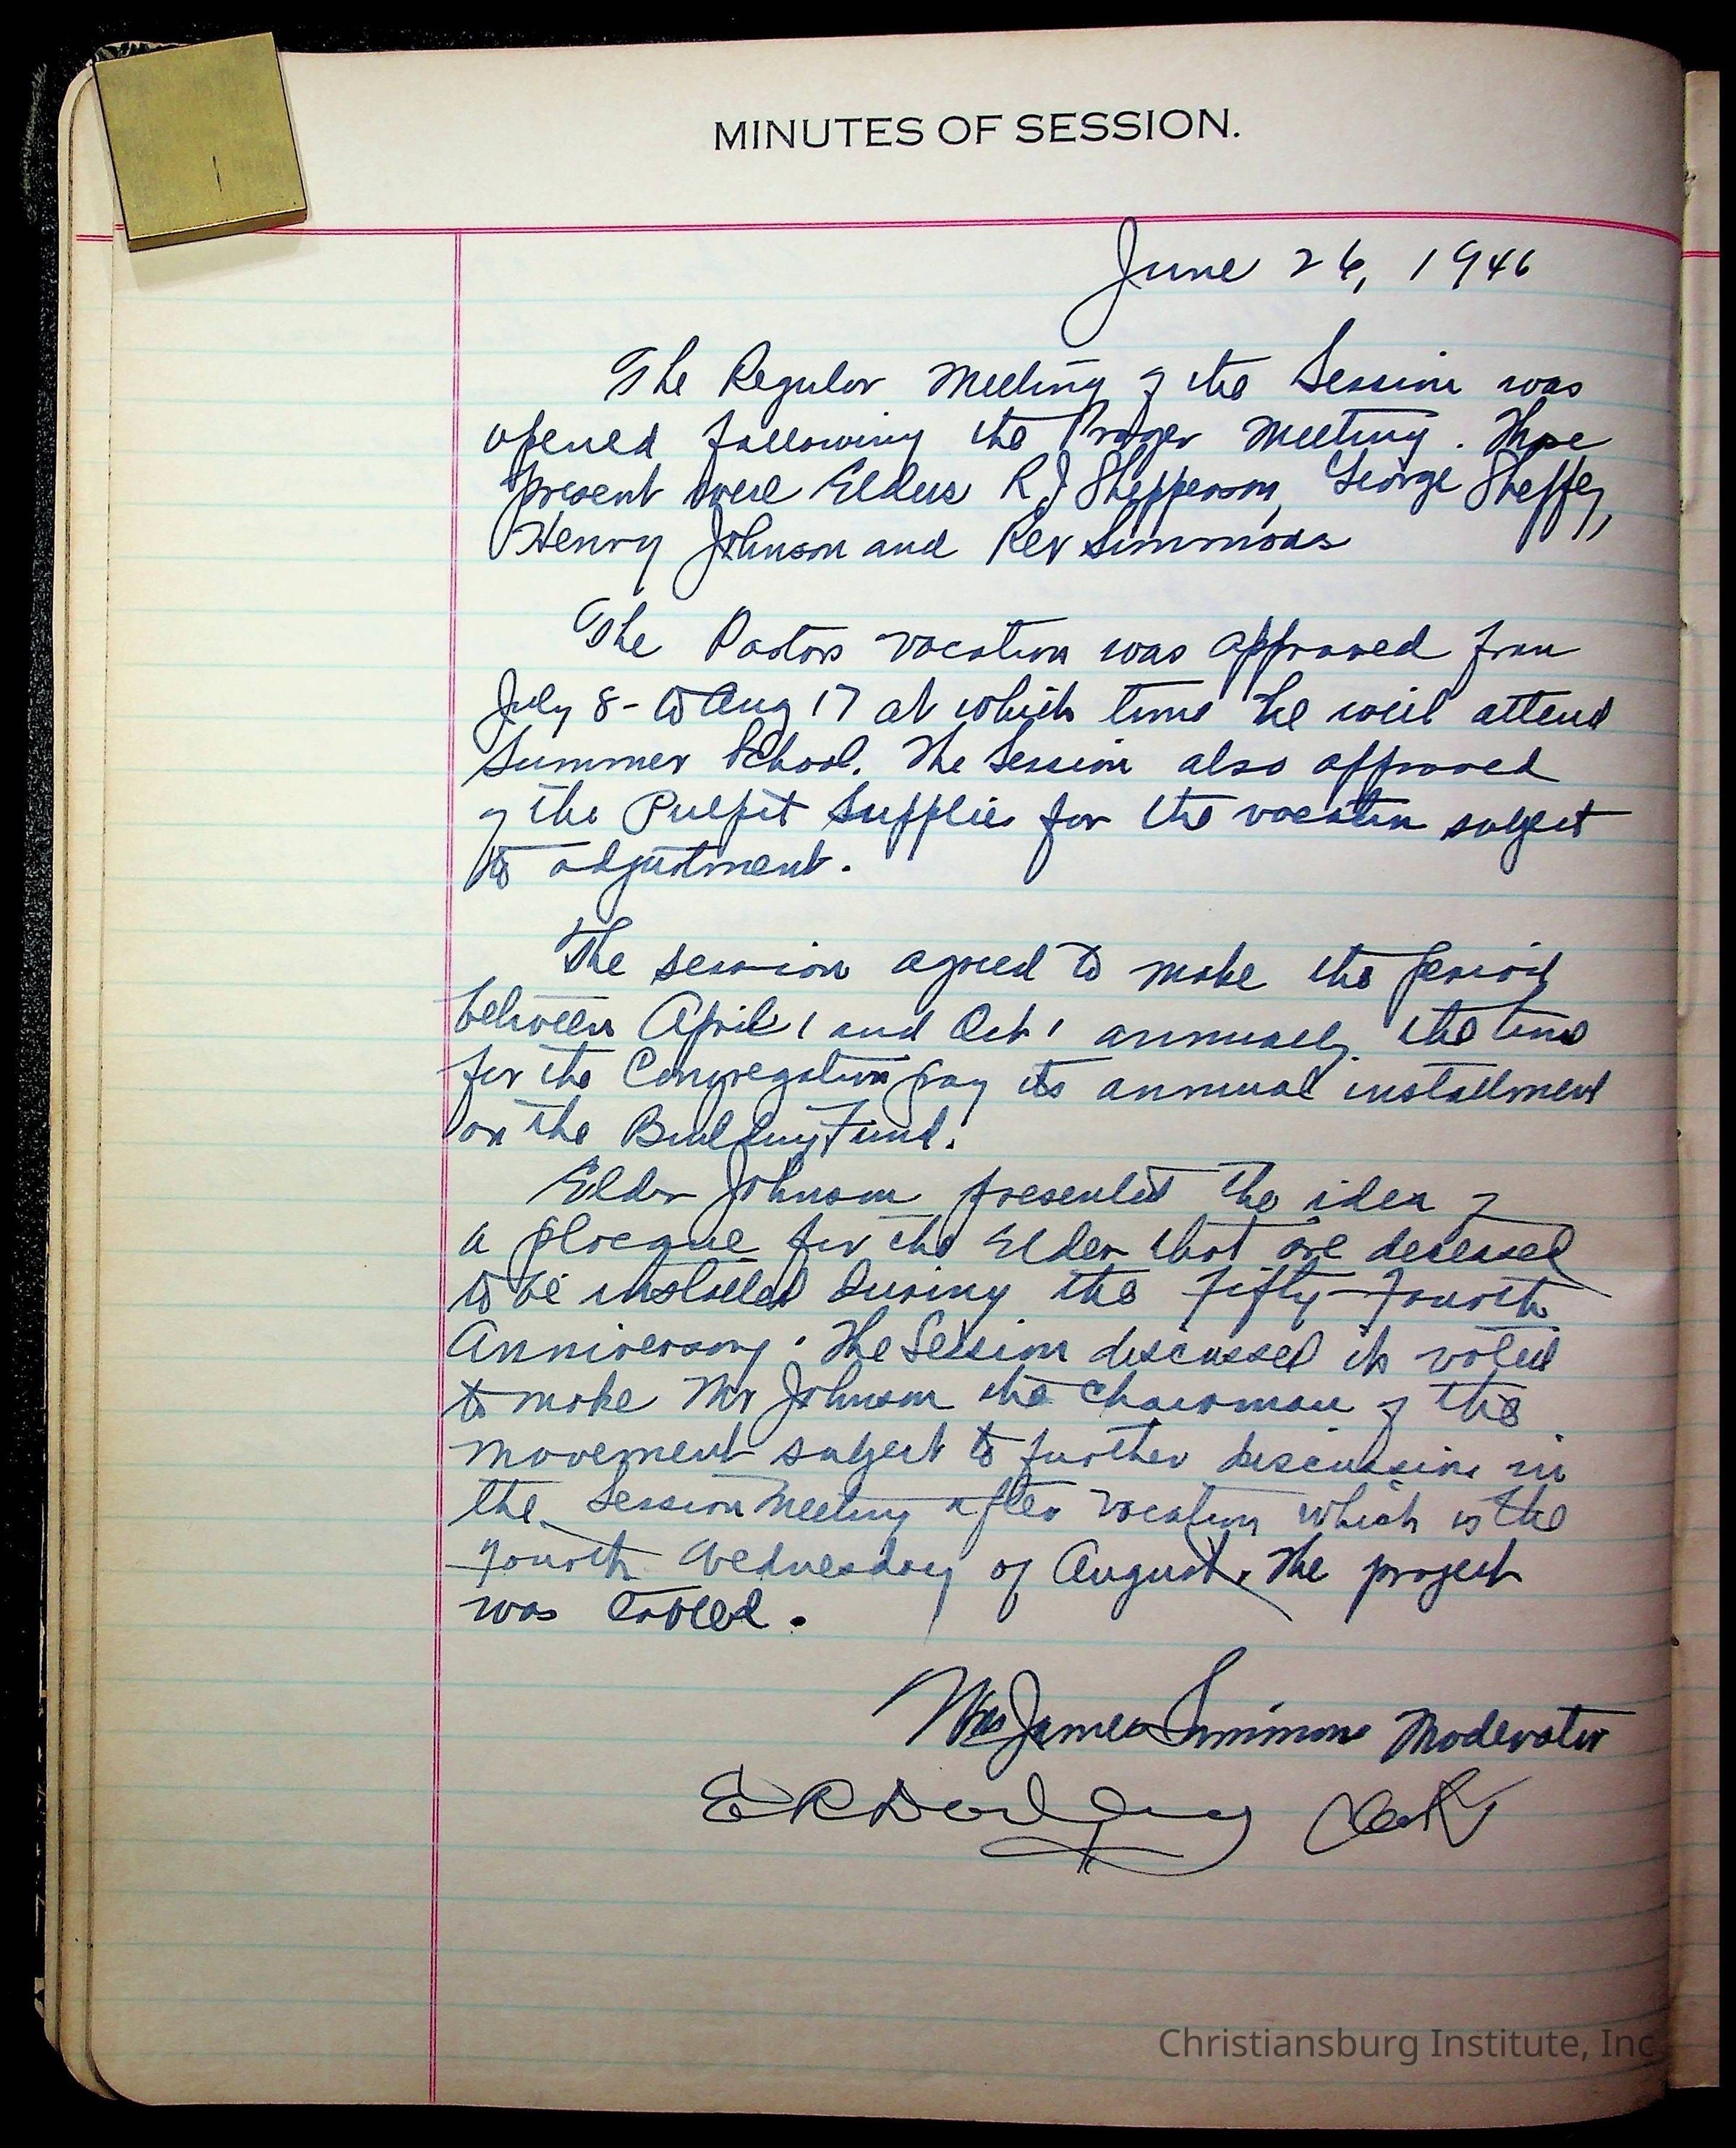 MINUTES OF SESSION.
June 26, 1946
The Regular Meeting of the Session was
opened following the Prayer Meeting. Those
present were Elders R J Shepperson, George Sheffey,
Henry Johnson and Rev Simmons
The Pastors vacation was approved from
July 8 - to Aug 17 at which time he will attend
Summer School. The Session also approved
of the Pulpit Supplies for the vacation subject
to adjustment.
The session agreed to make the period
between April 1 and Oct 1 annually the time
for the Congregation pay its annual installment
on the Building Fund.
Elder Johnson presented the idea of
a placque for the Elder that are deceased
to be installed during the Fifty-Fourth
Anniversary. The Session discussed it voted
to make Mr Johnson the chairman of the
movement subject to further discussion in
the Session Meeting after vacation which is the
Fourth Wednesday of August. The project
was tabled.
James Simmons Moderator
E R Clerk
Christiansburg Institute, Inc